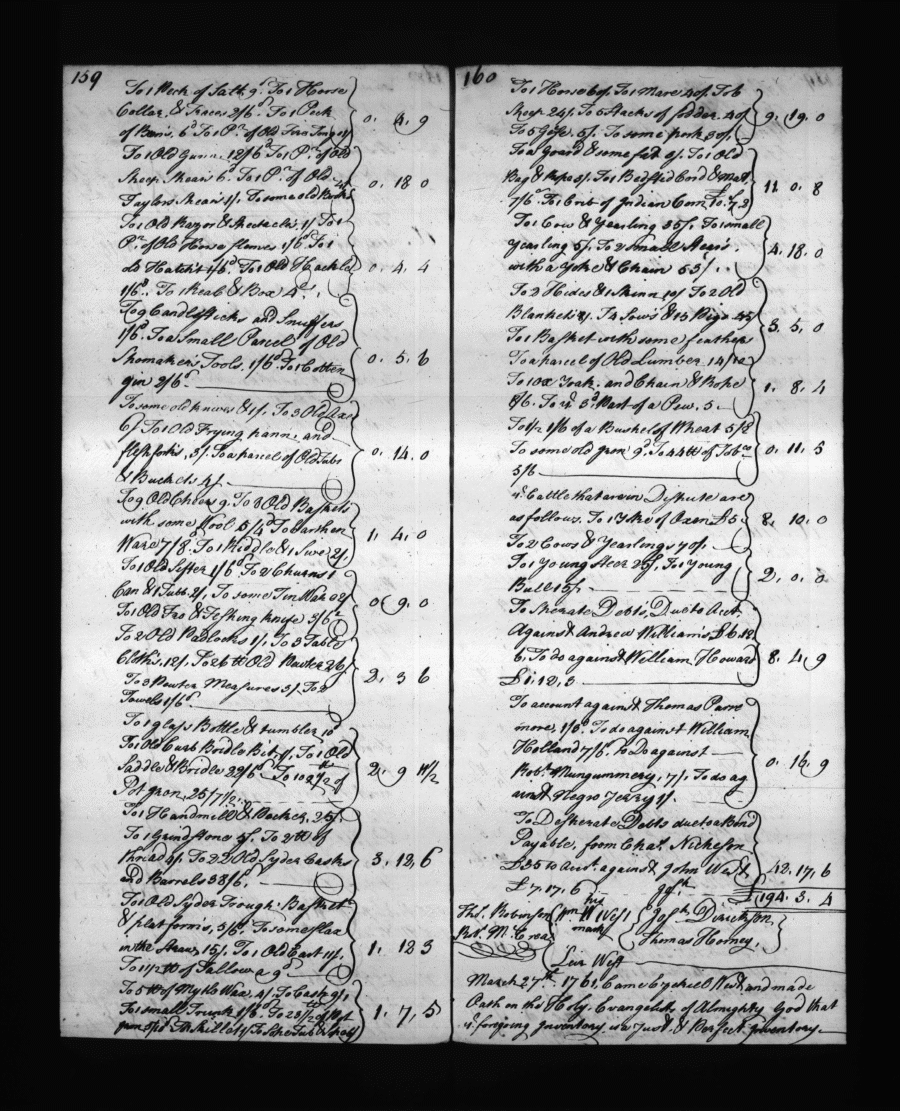 159
To 1 Peck of Salt 9d. To 1 Horse
Collar, & Traces 2/6d. To 1 Peck
of Bens, 6d To 1 Pr of Old Fire Tongs 1/
0. 4. 9
To 1 Old Gunn, 12/6d To 1 Pr of Old
Sheep Shears 6d. To 1 Pr of Old
Taylors Shears 1/. To some old Books 4/
0. 18 0
To 1 Old Razor & Spectacles, 1/ To 1
Pr of Old Horse flemes 1/6d To 1
old Hatchit 1/6d. To 1 Old Hackle
1/6d. To 1 & Box 4d.
0. 4. 4
To 9 Candlesticks and Snuffers
1/6d. To a Small Parcel of Old
Shomakers Tools, 1/6d To 1 Cotten
gin 2/6d.
0. 5. 6
To some old knives & 1/. To 3 Old Axes
6/ To 1 Old Frying pann, and
flesh fork, 3/. To a parcel of Old Tubs
& Buckets 4/.
0. 14. 0
To 9 Old Cheers 9/. To 3 Old Baskets
with some Wool 5/4d To Earthen
Ware 7/8. To 1 Riddle & 1 Sive 2/.
1. 4. 0
To 1 Old Sifter 1/6d To 2 Churns 1
Can & 1 Tubb 2/. To some Tin Ware 2/
To 1 Old Fro & knife 3/6d
0. 9. 0
To 2 Old Padlocks 1/. To 3 Table
Cloths, 12/. To 26 lb Old Pewter 26/
To 3 Pewter Measures 3/. To 2
Towels 1/6d
2. 3 6
To 1 glass Bottle & tumbler 10d
To 1 Old Curb Bridle Bit 1/, To 1 Old
Saddle & Bridle 22/6d To 102 1/2 lb of
Pot Iron, 25/7 1/2.
2. 9 11 1/2
To 1 Handmill & 25/.
To 1 Grindstone 5/. To 2 lb of
thread 4/. To 22 Old Syder Casks
and Barrels 38/6.
3. 12, 6
To 1 Old Syder Trough, Basket
& platform, 5/6d. To some flax
in the Straw, 15/. To 1 Old
To 1 1/2 lb of Tallow a 9d
1. 12 3
To 5 lb of Myrtle Wax, 4/. To Cask 9/,
To 1 small Trunk 1/6d. To 28 1/2 lb of Pot
Iron To Skillet
1. 7, 5
160
To 1 Horse 60/. To 1 Mare 40/. To 6
Sheep 24/. To 5 Stacks of fodder 40/
To 5 Gose, 5/. To some pork 30/.
9. 19. 0
To a Goard & some fat 3/. To 1 Old
Bag & Rope 3/. To 1 Bedsted Cord & Mat,
7/6d. To 1 Crib of Indian Corn £10. 7. 2
11. 0. 8
To 1 Cow & Yearling 35/. To 1 small
yearling 5/. To 2 Small Steers
with a Yoke & Chain 53/.
4. 18. 0
To 2 Hides & 1 Skinn To 2 Old
Blankets To 4 Sows & 15 Pigs 45
To 1 Basket with some feathers
3. 5. 0
To a parcel of Old Lumber 14/
To 1 ox Yoak and Chain & Rope
8/6. To ye 3d Part of a Pew, 5
1. 8. 4
To 1 1/2 of a Bushel of Wheat 5/
To some old Iron 9d. To 44 lb of Tobco
5/6
0. 11. 5
ye Cattle that are in Dispute are
as follows. To 1 Yoke of Oxen £5.
To 2 Cows & Yearlings 70/.
8. 10. 0
To 1 Young Steer 25/. To 1 Young
Bull 15/.
2. 0. 0
To Sperate Debts, Due to Acct.
Against Andrew Williams, £6. 12.
6. To do against William Howard
£1. 12, 3
8. 4. 9
To account against Thomas Parre
more, 1/6d. To do against William
Holland 7/6d. To Do against
Robt. Mungummery, 7/. To do ag
ainst Negro Jerry 1/.
0. 16. 9
To Desperate Debts due to a Bond
Payable, from Chas. Nickeson
£35 to Acct. against John West
£7. 17, 6
42. 17, 6
£194. 3. 4
Thos. Robinson
Robt. McCrea
Wm his W West mark
Joseph Dirickson
Thomas Horney,
Levi West
March 27th. 1761, Came Ezekiel West and made
Oath on the Holy Evangelists of Almighty God that
ye forgoing Inventory is a Just & Perfect Inventory.